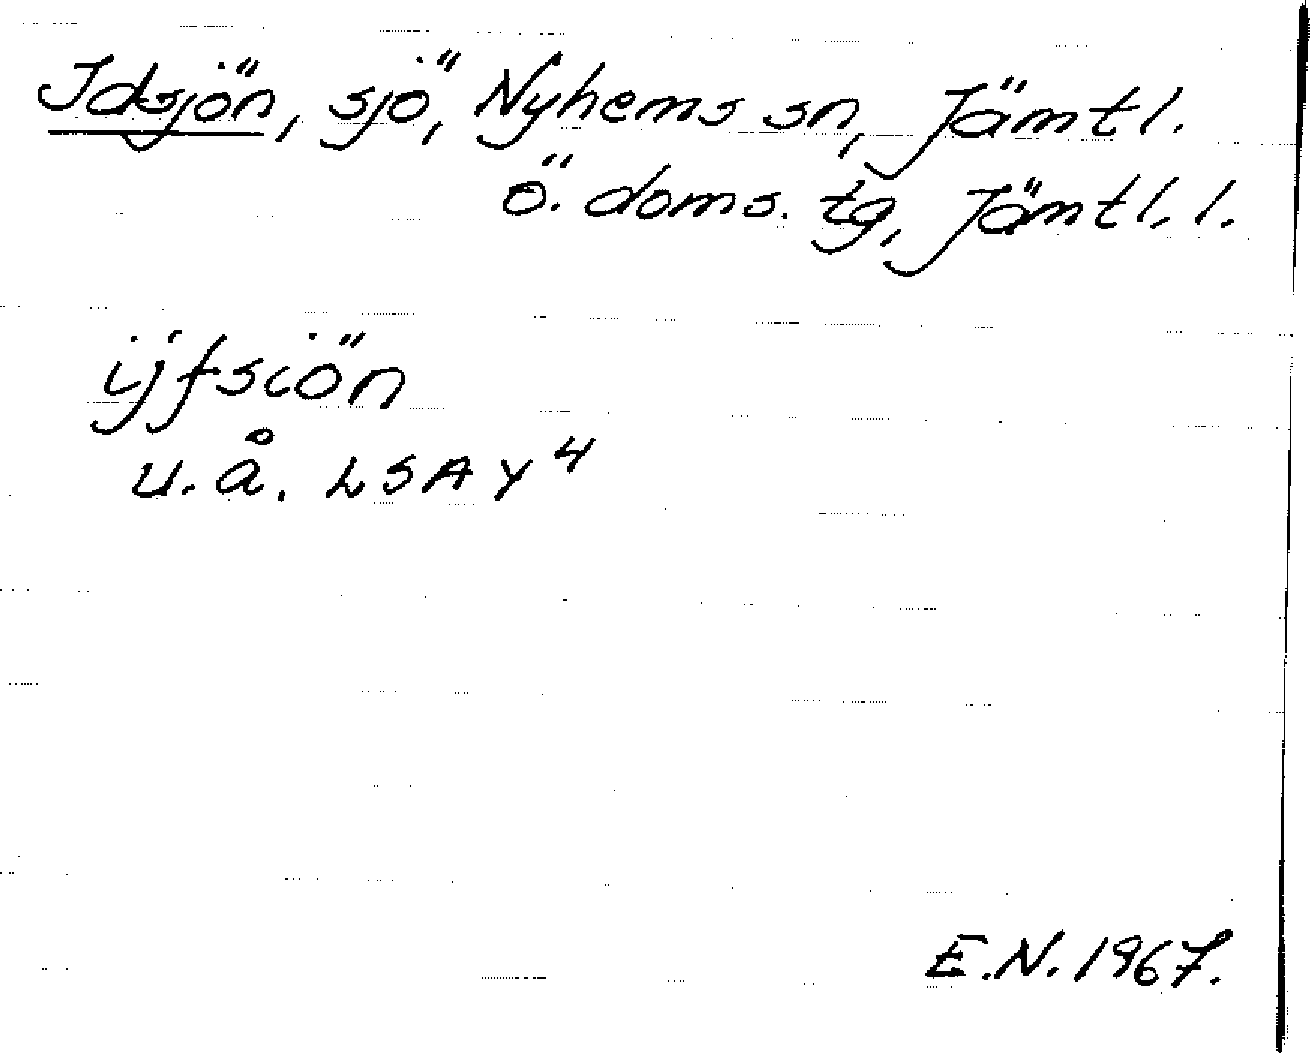 Idsjön, sjö, Nyhems sn, Jämtl.
ö. doms. tg, Jämtl. l.
ijfsiön
u.å. LSA Y 4
E.N. 1967.